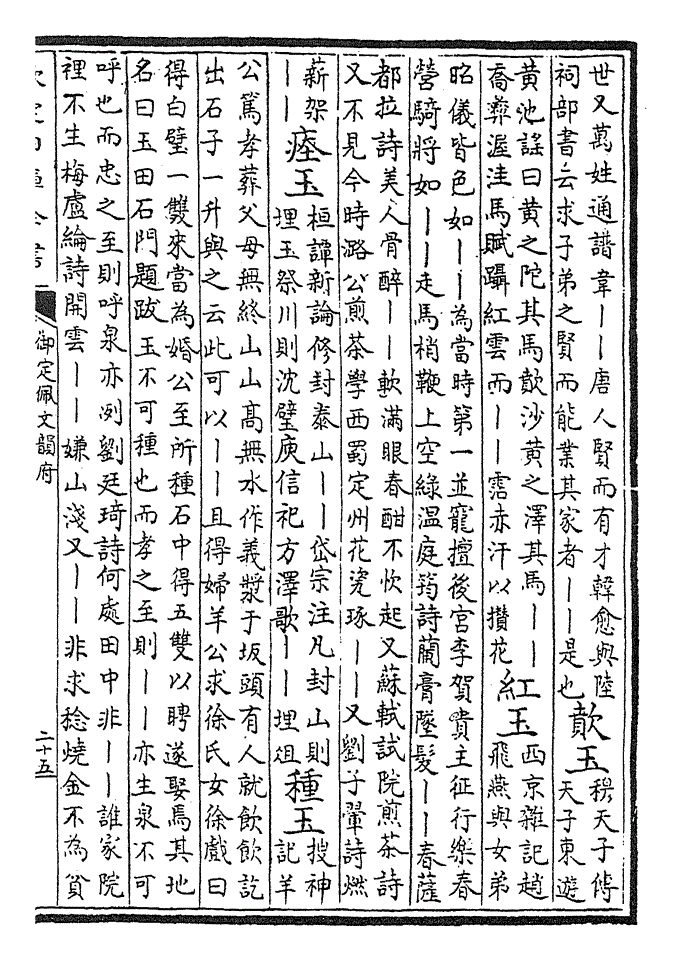 世又萬姓通譜韋丨丨唐人賢而有才韓愈與陸
祠部書云求子弟之賢而能業其家者丨丨是也
歕玉
穆天子傳
天子東遊
黄池謡曰黄之陀其馬歕沙黄之澤其馬丨丨
喬彝渥洼馬賦躡紅雲而丨丨霑赤汗以攢花
紅玉
西京雜記趙
飛燕與女弟
昭儀皆色如丨丨為當時第一並寵擅後宫李賀貴主征行樂春
營騎將如丨丨走馬梢鞭上空緑温庭筠詩蘭膏墜髪丨丨春薩
都拉詩美人骨醉丨丨軟滿眼春酣不忺起又蘇軾試院煎茶詩
又不見今時潞公煎茶學西蜀定州花瓷琢丨丨又劉子翬詩燃
薪架
丨丨
瘞玉
桓譚新論修封泰山丨丨岱宗注凡封山則
埋玉祭川則沈璧庾信祀方澤歌丨丨埋俎
種玉
搜神
記羊
公篤孝葬父母無終山山髙無水作義漿于坂頭有人就飲飲訖
出石子一升與之云此可以丨丨且得婦羊公求徐氏女徐戲曰
得白璧一雙來當為婚公至所種石中得五雙以聘遂娶焉其地
名曰玉田石門題跋玉不可種也而孝之至則丨丨亦生泉不可
呼也而忠之至則呼泉亦冽劉廷琦詩何處田中非丨丨誰家院
裡不生梅盧綸詩開雲丨丨嫌山淺又丨丨非求稔燒金不為貧
御定佩文韻府
二十五